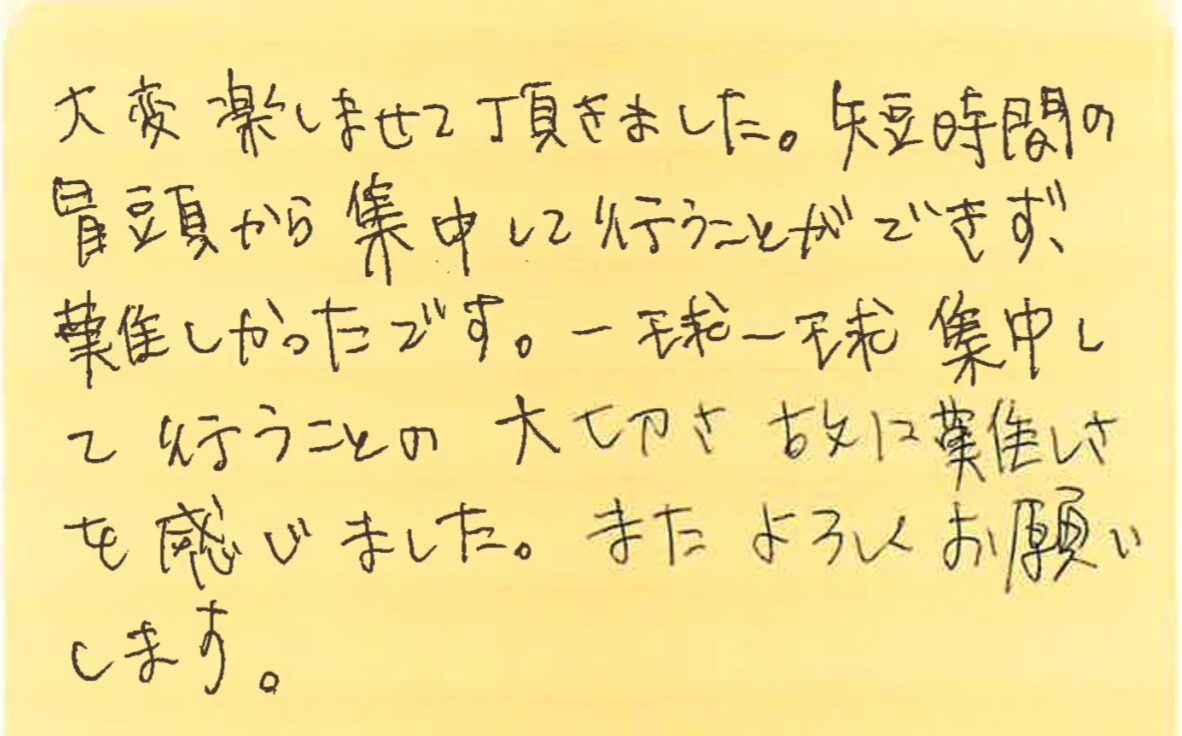 大変楽しませて頂きました。短時間の
冒頭から集中して行うことができず、
難しかったです。一球一球集中し
て行うことの大切さ故に難しさ
を感じました。またよろしくお願い
します。